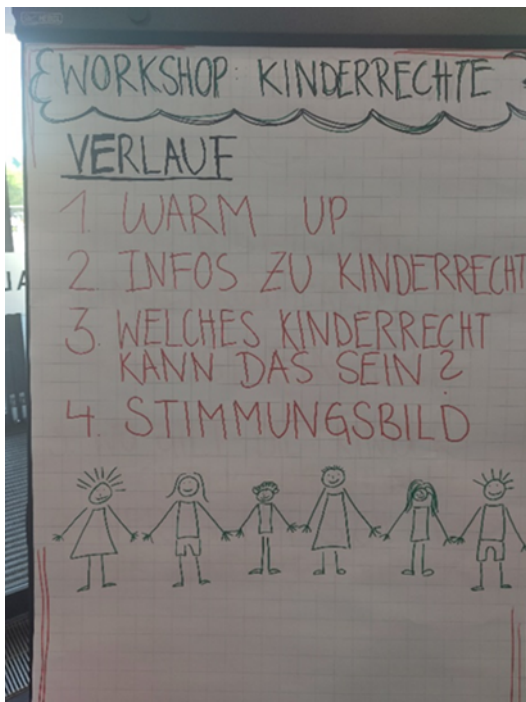 WORKSHOP: KINDERRECHTE
VERLAUF
1. WARM UP
2 INFOS ZU KINDERRECHT
3. WELCHES KINDERRECHT
KANN DAS SEIN?
4. STIMMUNGSBILD